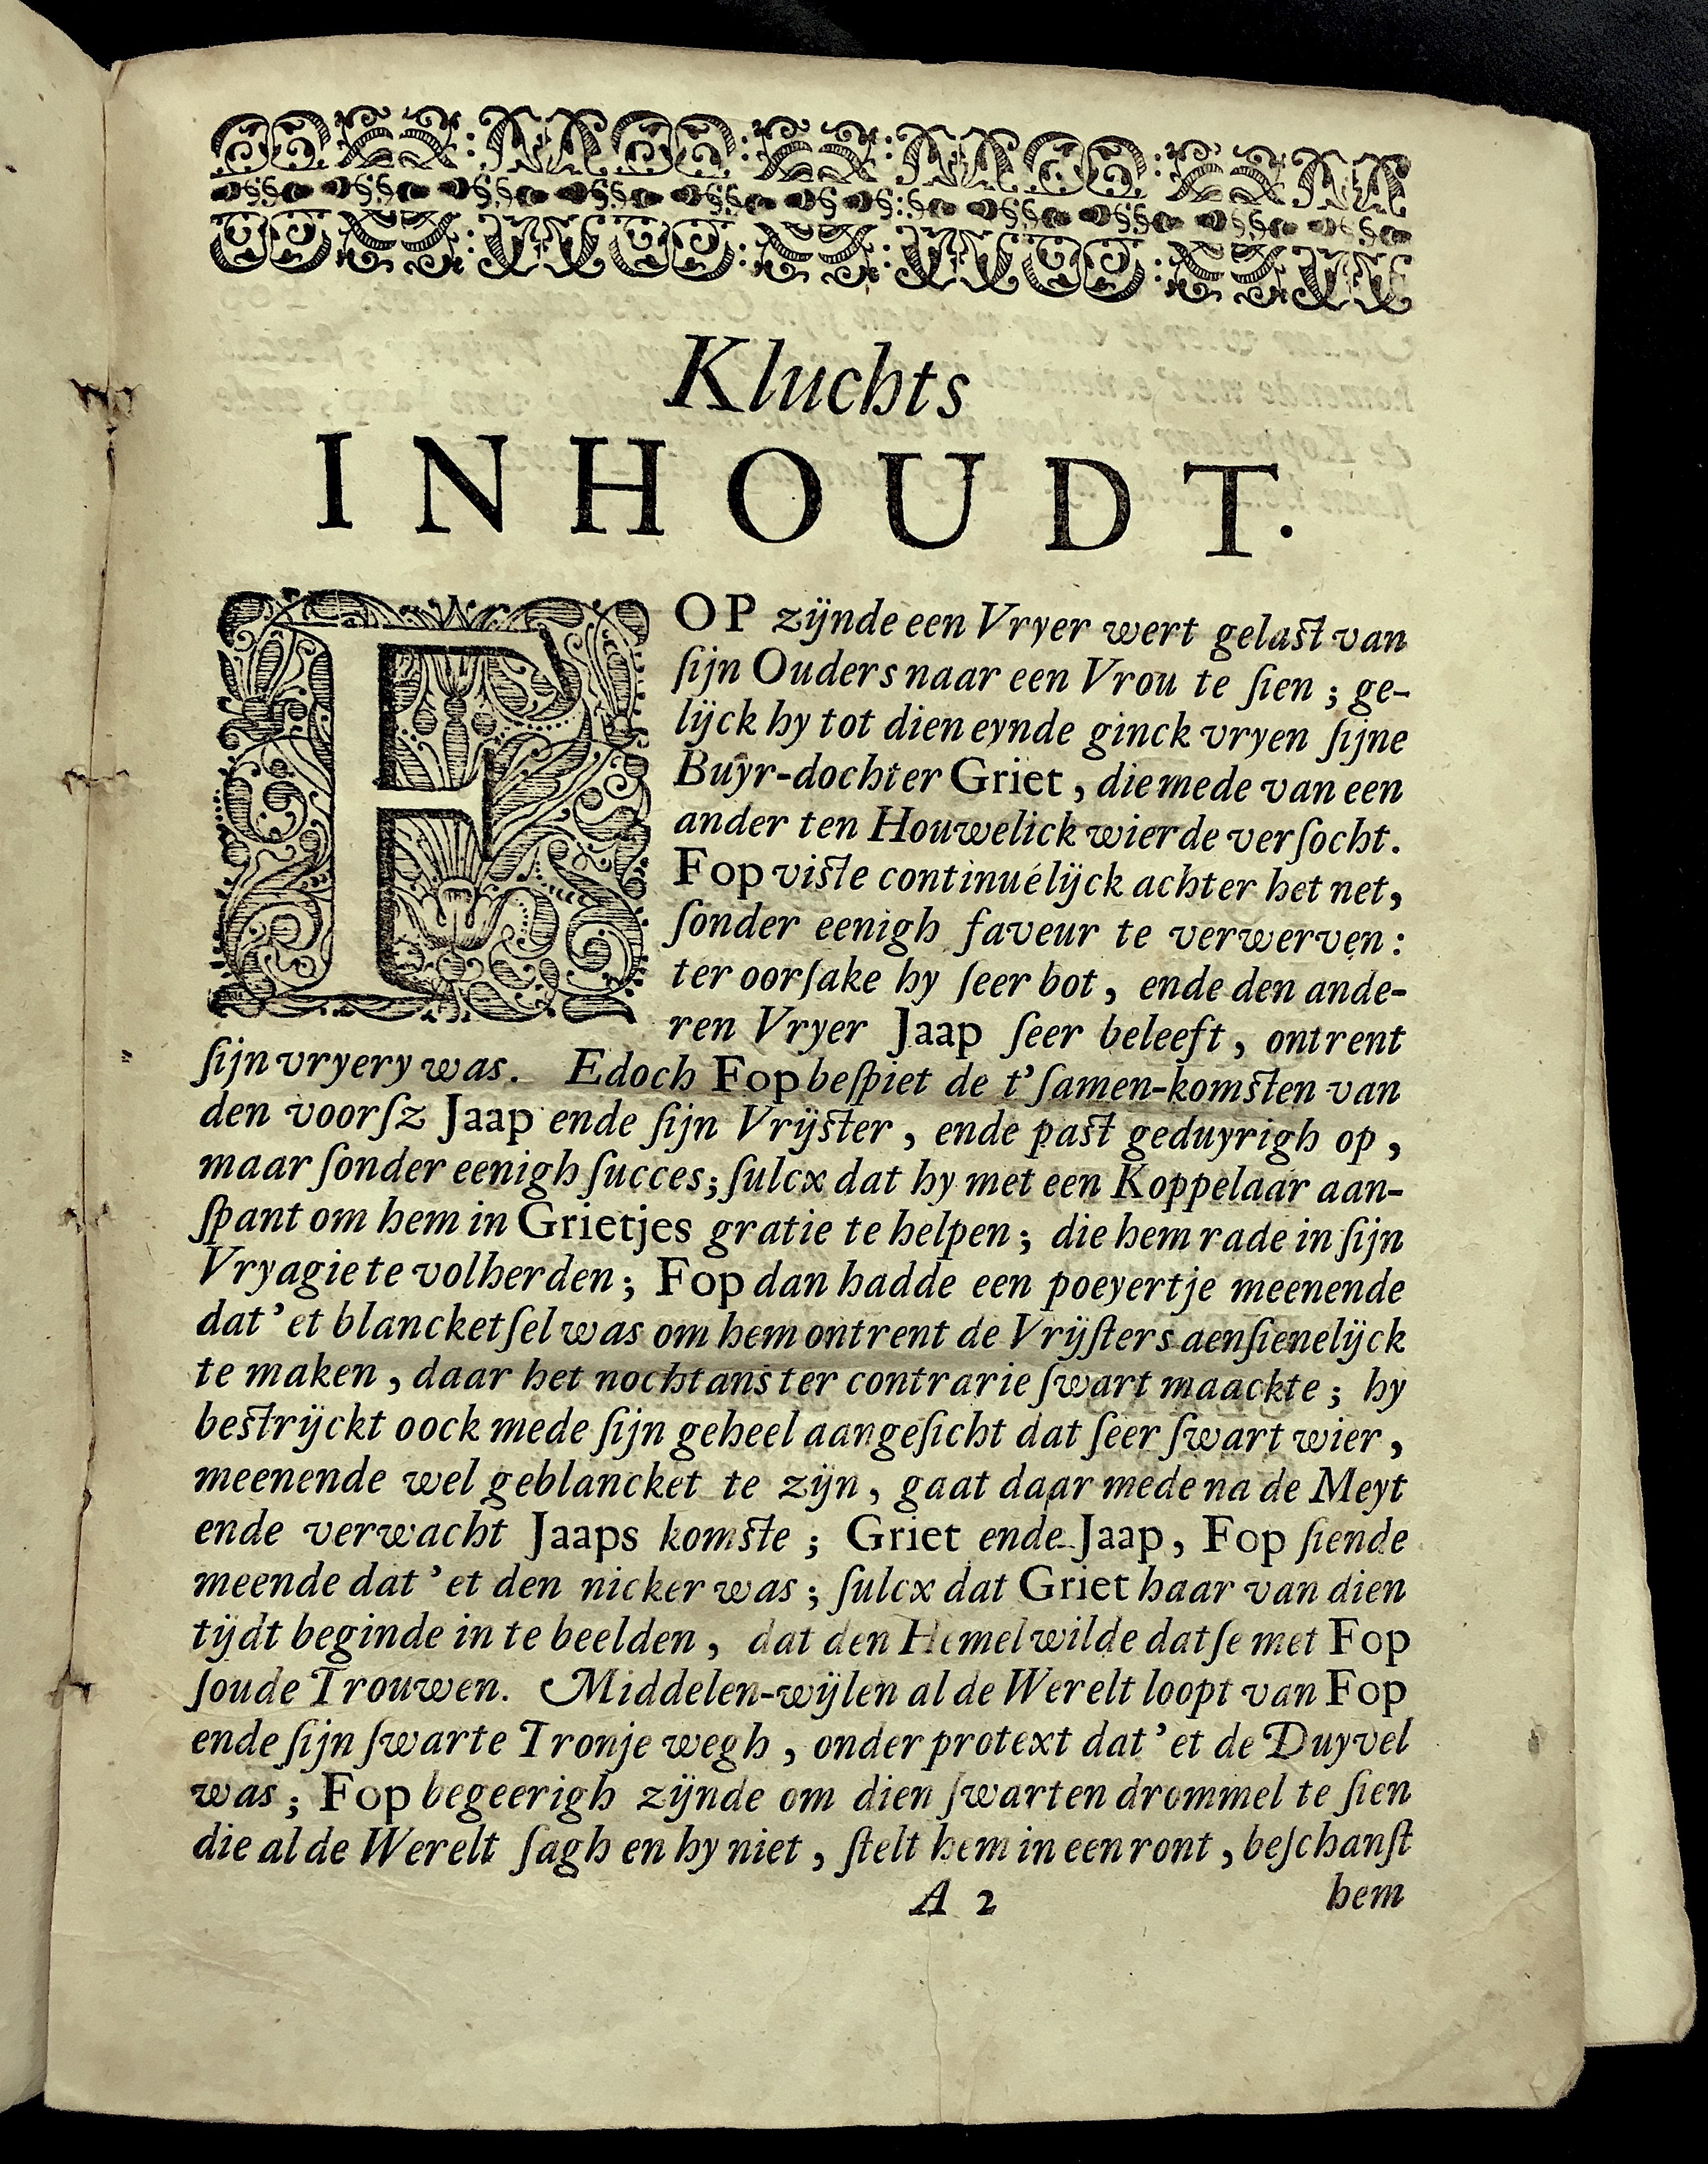 Kluchts
INHOUDT.
FOP zijnde een Vryer wert gelast van
ſijn Ouders naar een Vrou te ſien ; ge-
lijck hy tot dien eynde ginck vryen ſijne
Buyr-dochter Griet , die mede van een
ander ten Houwelick wierde verſocht.
Fop viste continuélijck achter het net,
ſonder eenigh faveur te verwerven :
ter oorſake hy ſeer bot , ende den ande-
ren Vryer Jaap ſeer beleeft , ontrent
ſijn vryery was. Edoch Fop beſpiet de t'ſamen-komsten van
den voorſz Jaap ende ſijn Vrijster , ende past geduyrigh op ,
maar ſonder eenigh ſucces ; ſulcx dat hy met een Koppelaar aan-
ſpant om hem in Grietjes gratie te helpen ; die hem rade in ſijn
Vryagie te volherden ; Fop dan hadde een poeyertje meenende
dat 'et blancketſel was om hem ontrent de Vrijſters aenſienelijck
te maken , daar het nochtans ter contrarie ſwart maackte ; hy
bestrijckt oock mede ſijn geheel aangeſicht dat ſeer ſwart wier ,
meenende wel geblancket te zijn , gaat daar mede na de Meyt
ende verwacht Jaaps komste ; Griet ende Jaap , Fop ſiende
meende dat 'et den nicker was ; ſulcx dat Griet haar van dien
tijdt beginde in te beelden , dat den Hemel wilde datſe met Fop
ſoude Trouwen. Middelen-wijlen al de Werelt loopt van Fop
ende ſijn ſwarte Tronje wegh , onder protext dat 'et de Duyvel
was ; Fop begeerigh zijnde om dien ſwarten drommel te ſien
die al de Werelt ſagh en hy niet , ſtelt hem in een ront , beſchanſt
A 2 hem